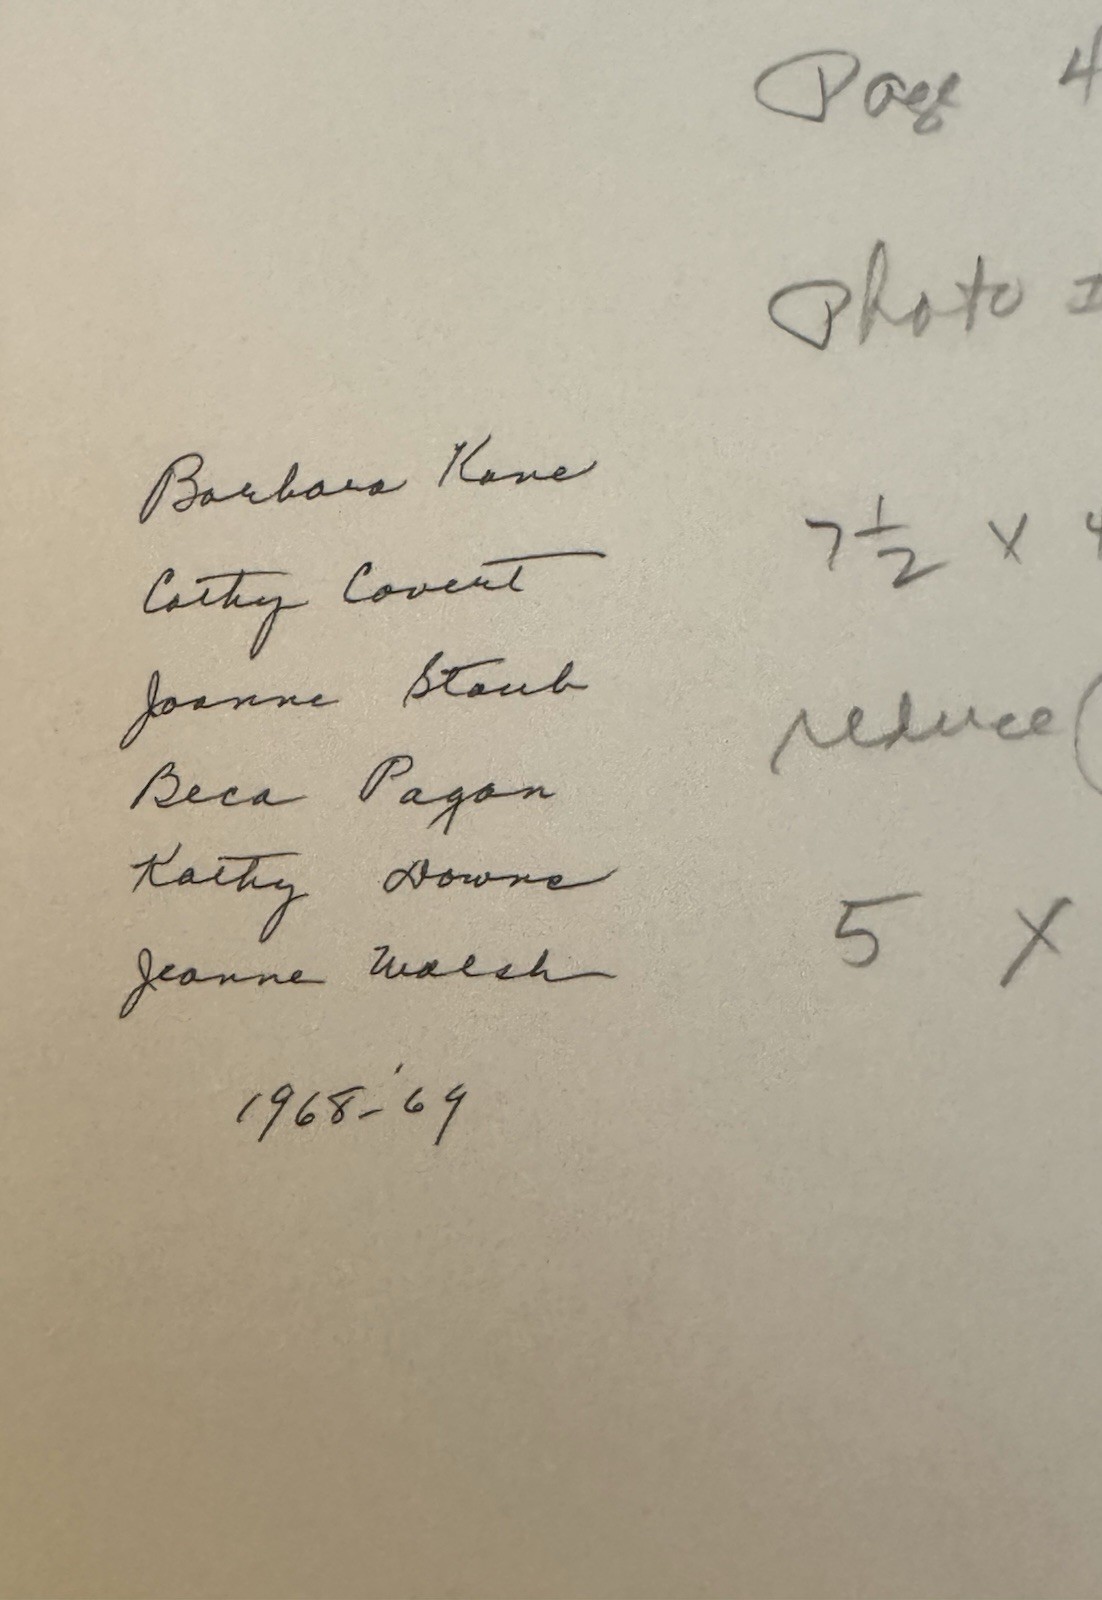 Page 4
Photo I
Barbara Kane
7 1/2 x 4
Cathy Covert
Joanne Staub
reduce (
Beca Pagan
Kathy Downe
5 x
Jeanne Walsh
1968-'69